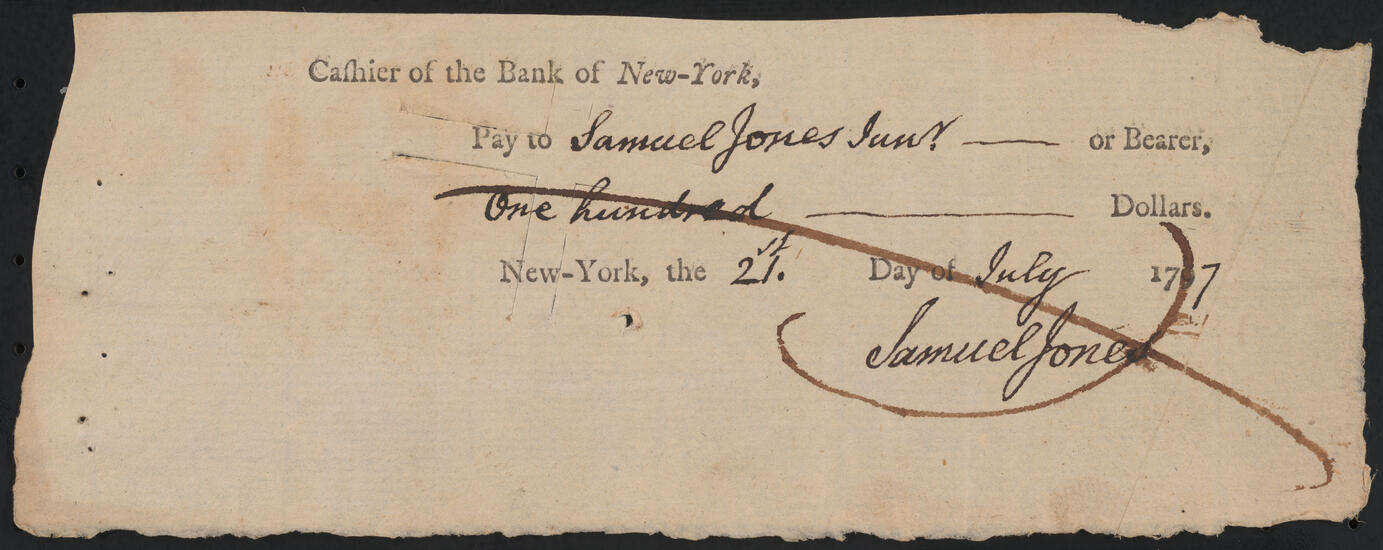 Caſhier of the Bank of New-York,
Pay to Samuel Jones Junr. — or Bearer,
One hundred — Dollars.
New-York, the 21.st Day of July 1797
Samuel Jones